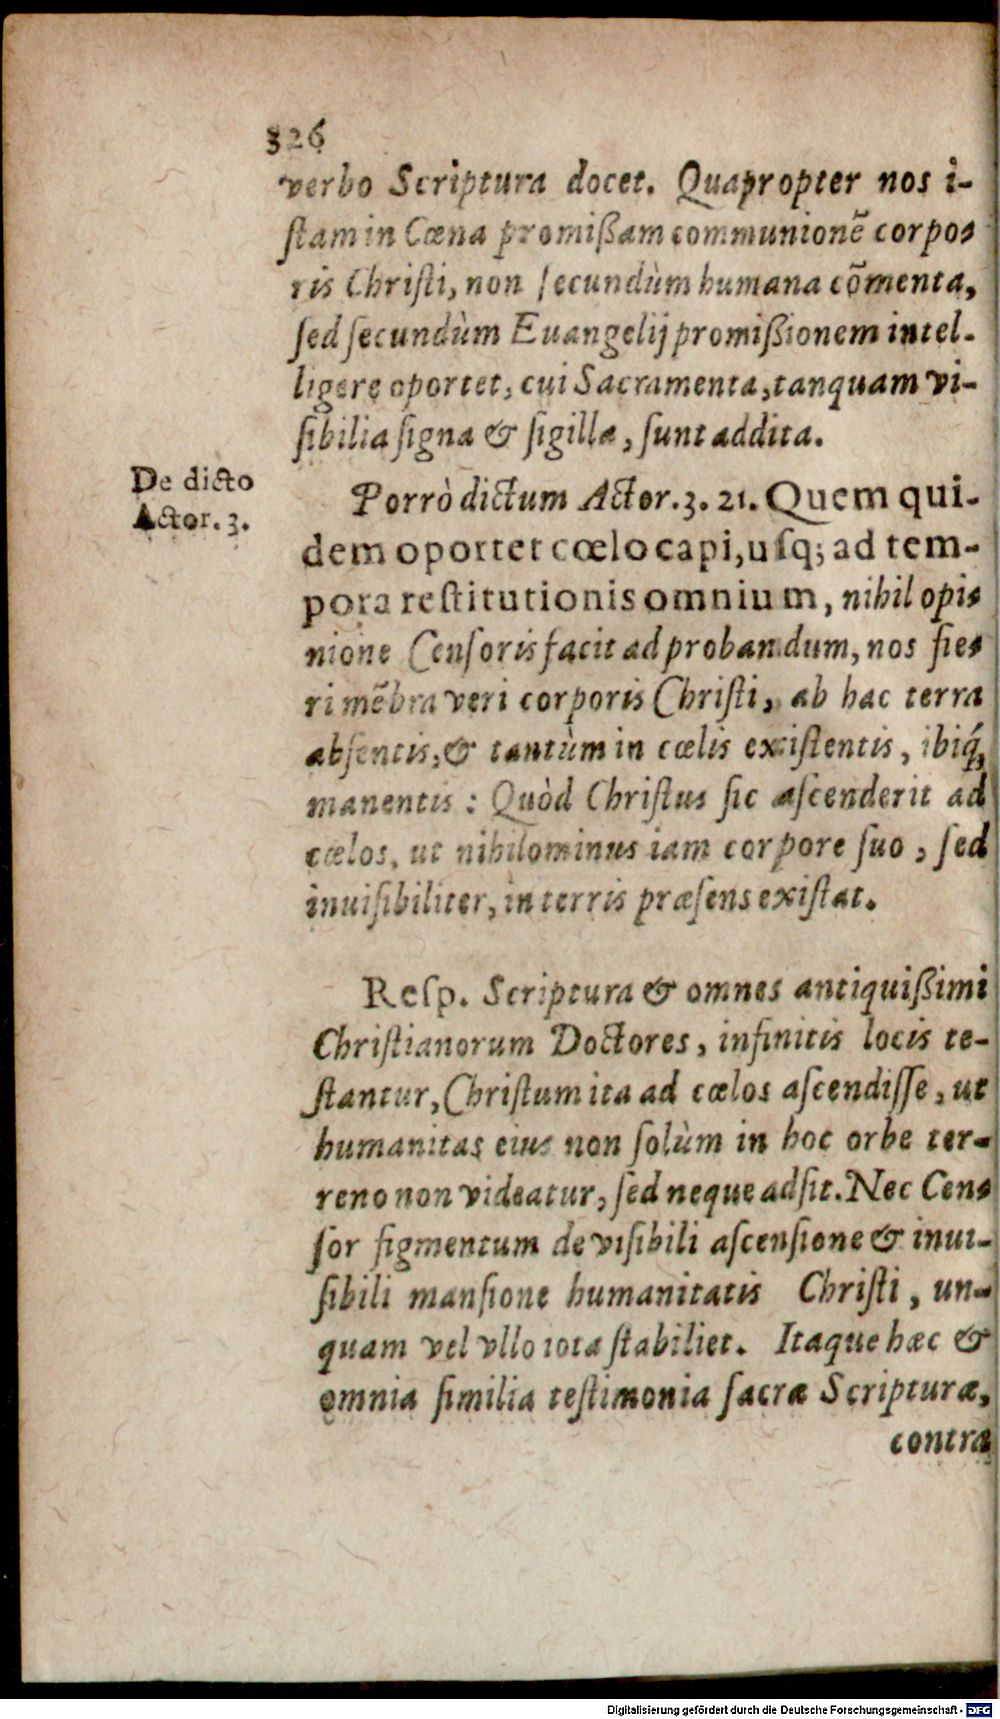 326
verbo Scriptura docet. Quapropter nos i-
ſtam in Cœna promißam communionẽ corpo-
ris Chriſti, non ſecundùm humana cõmenta,
ſed ſecundùm Euangelij promißionem intel-
ligere oportet, cui Sacramenta, tanquam vi-
ſibilia ſigna & ſigilla, ſunt addita.
De dicto
Actor. 3.
Porrò dictum Actor. 3. 21. Quem qui-
dem oportet cœlo capi, uſq; ad tem-
pora reſtitutionis omnium, nihil opi-
nione Cenſoris facit ad probandum, nos fie-
ri mẽbra veri corporis Chriſti, ab hac terra
abſentis, & tantùm in cœlis exiſtentis, ibiq́;
manentis: Quòd Chriſtus ſic aſcenderit ad
cœlos, ut nihilominus iam corpore ſuo, ſed
inuiſibiliter, in terris præſens exiſtat.
Reſp. Scriptura & omnes antiquißimi
Chriſtianorum Doctores, infinitis locis te-
ſtantur, Chriſtum ita ad cœlos aſcendiſſe, ut
humanitas eius non ſolùm in hoc orbe ter-
reno non videatur, ſed neque adſit. Nec Cen-
ſor figmentum de viſibili aſcenſione & inui-
ſibili manſione humanitatis Chriſti, un-
quam vel vllo iota ſtabiliet. Itaque hæc &
omnia ſimilia teſtimonia ſacræ Scripturæ,
contra
Digitalisierung gefördert durch die Deutsche Forschungsgemeinschaft - DFG